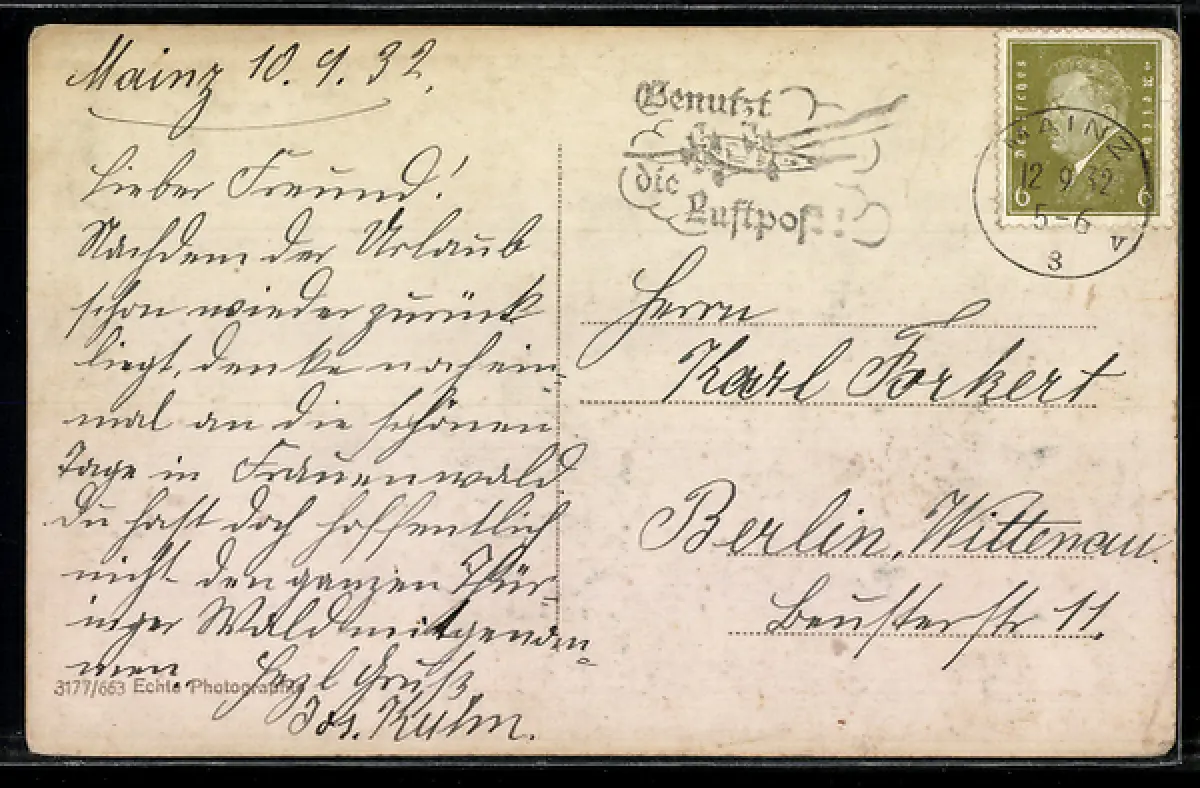 Mainz 10.9.32.
Lieber Freund!
Nachdem der Urlaub
schon wieder zurück
liegt, denke noch ein-
mal an die schönen
Tage in Frauenwald
Du hast doch hoffentlich
nicht den ganzen Thür-
inger Wald mitgenom-
men. Herzl Gruß
Jos. Kuhn.
3177/663 Echte Photographie
Benutzt
die
Luftpost!
Deutsches Reich
6 6
MAINZ
12 9 32
5-6
V
3
Herrn
Karl Forkert
Berlin, Wittenau
Beusterstr 11.